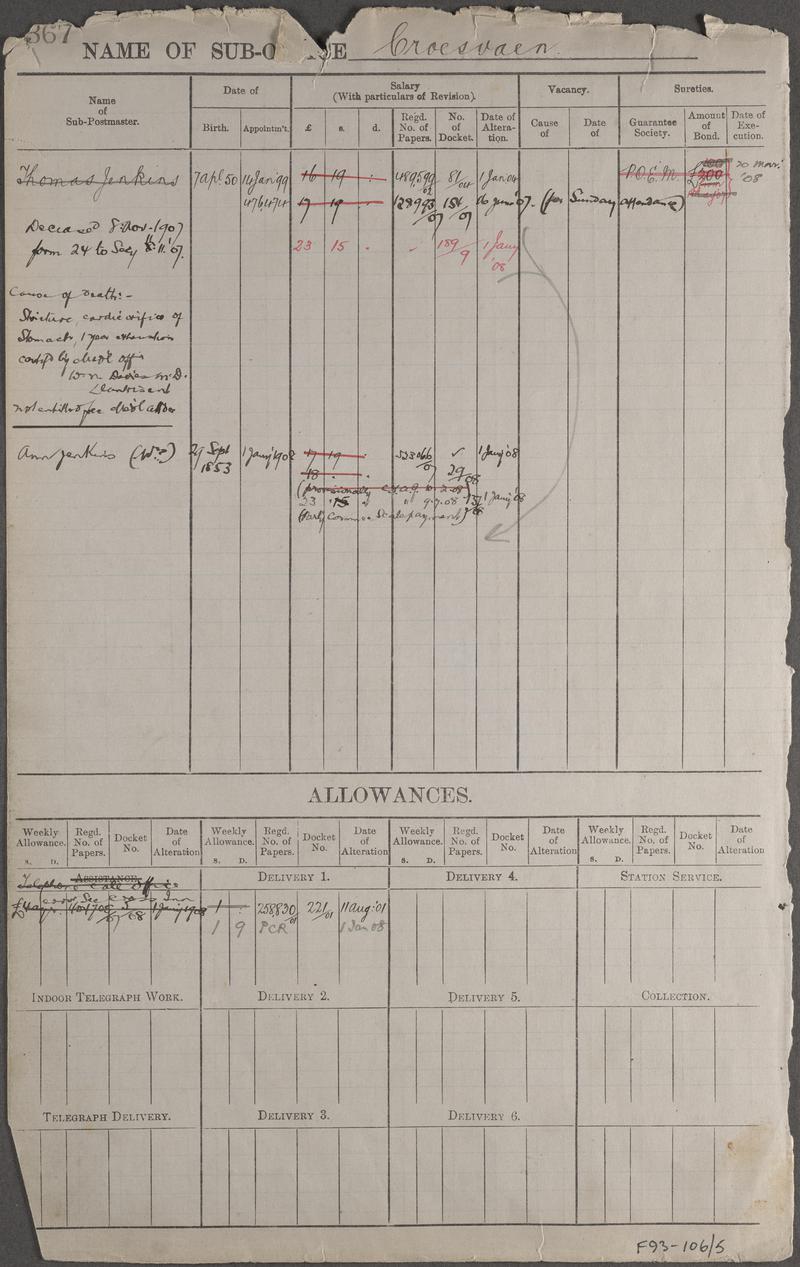 367
NAME OF SUB-O   CE Croesvaen.
Name of Sub-Postmaster.
Date of
Birth. Appointm't.
Salary (With particulars of Revision).
£ s. d. Regd. No. of Papers. No. of Docket. Date of Alteration.
Vacancy.
Cause of Date of
Sureties.
Guarantee Society. Amount of Bond. Date of Execution.
Thomas Jenkins 7 Apl. 50 14 Jan '99 16 19 . 489,599/02 81/04 1 Jan 04 P.O.E.M. £200 20 Mar: '08
476,474 17 19 . 128993/07 184/07 16 June '07. (for Sunday attendance)
Deceased 8: Nov - 1907
form 24 to Secy 8.11.'07.
23 15 . 189/9 1 Jany '08
Cause of Death: -
Stricture, cardiac orifice of
Stomach, 1 year exhaustion
certifd by
Wm Davies M.D.
Llantrisant
Ann Jenkins (Wo) 29 Sept 1853 1 Jany 1908 17 19 . 533066/07 ✓ 1 Jany '08
18 . . 29/08
(provisionally
23 15 " 9.7.08 1 Jany '08
(Early
ALLOWANCES.
Weekly Allowance. s. D. Regd. No. of Papers. Docket No. Date of Alteration
Weekly Allowance. s. D. Regd. No. of Papers. Docket No. Date of Alteration
Weekly Allowance. s. D. Regd. No. of Papers. Docket No. Date of Alteration
Weekly Allowance. s. D. Regd. No. of Papers. Docket No. Date of Alteration
Assistance.
Telephone Call Office
DELIVERY 1.
DELIVERY 4.
STATION SERVICE.
See Cross Inn
1 Jany 1908
1 : 258,830/01 221/01 11 Aug: 01
1 9 PCR 1 Jan 08
INDOOR TELEGRAPH WORK.
DELIVERY 2.
DELIVERY 5.
COLLECTION.
TELEGRAPH DELIVERY.
DELIVERY 3.
DELIVERY 6.
F93-106/5